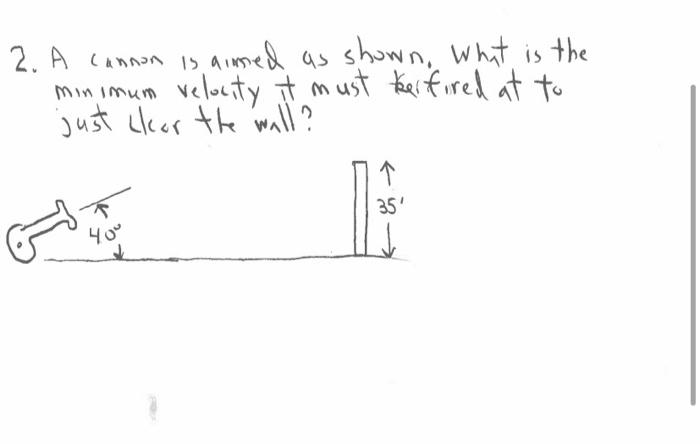 2. A cannon is aimed as shown. What is the
minimum velocity it must be fired at to
just clear the wall?
35'
40°